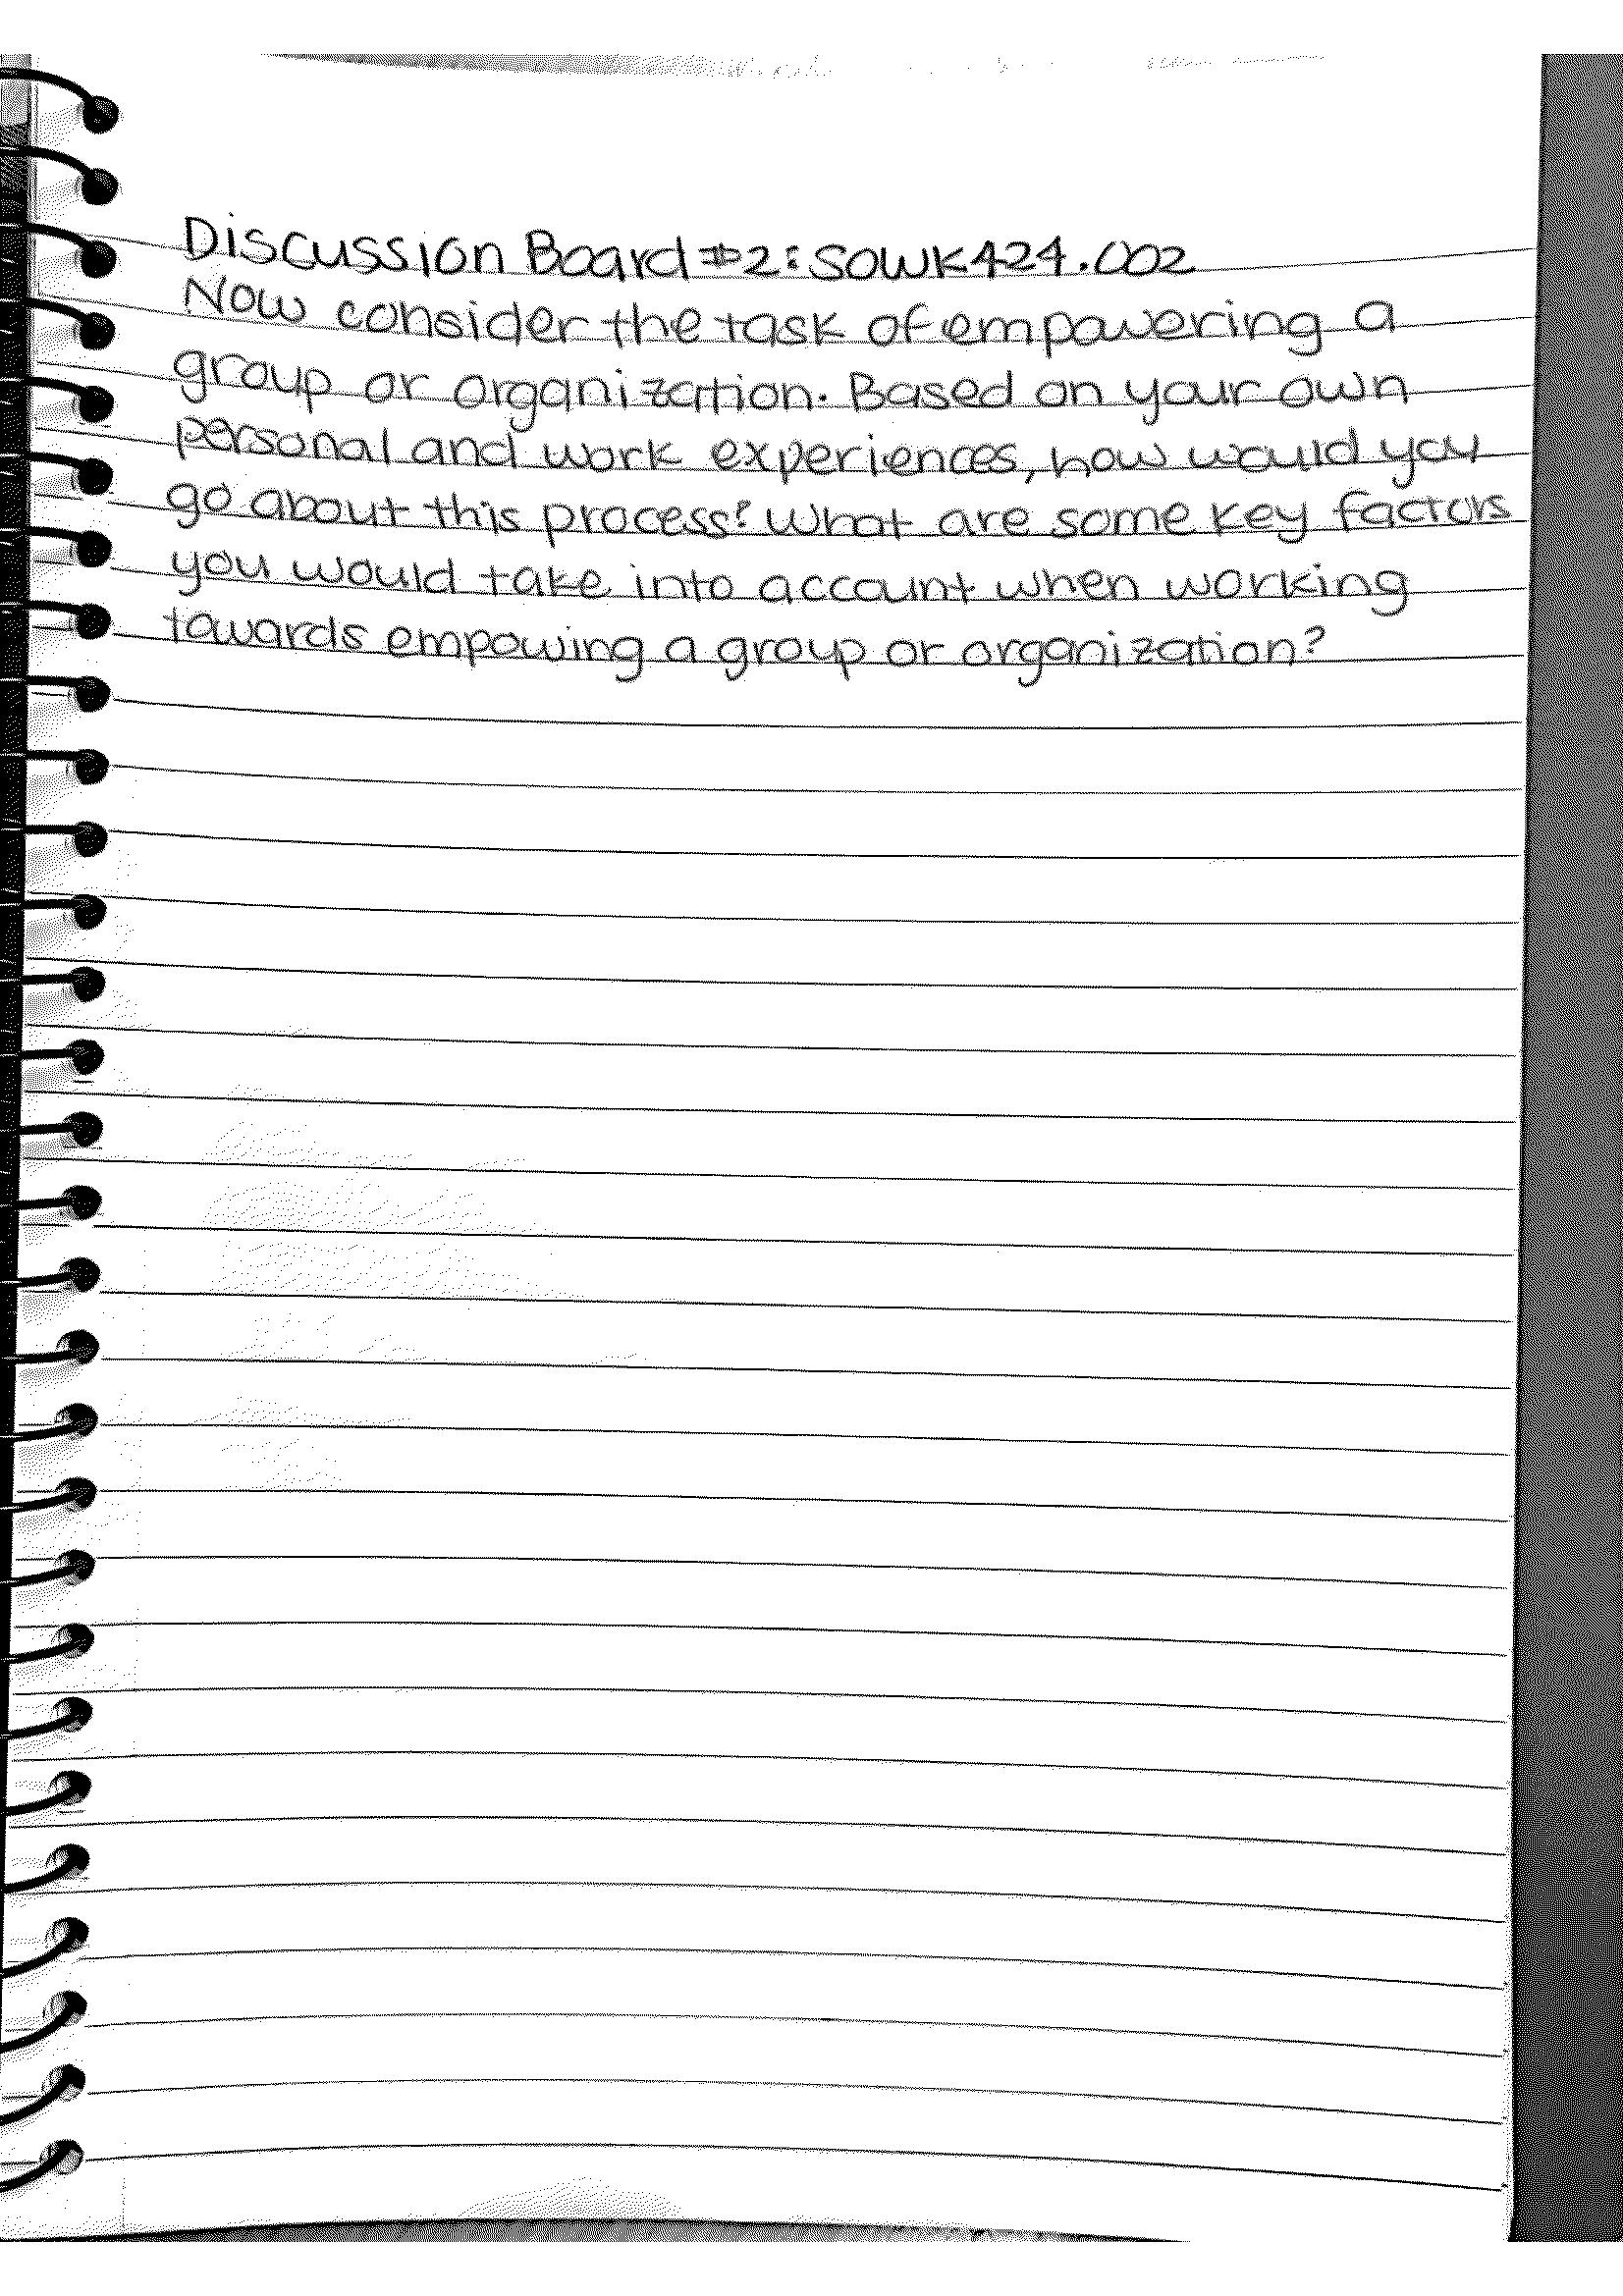 Discussion Board #2: SOWK424.002
Now consider the task of empowering a
group or organization. Based on your own
personal and work experiences, how would you
go about this process? What are some key factors
you would take into account when working
towards empowing a group or organization?